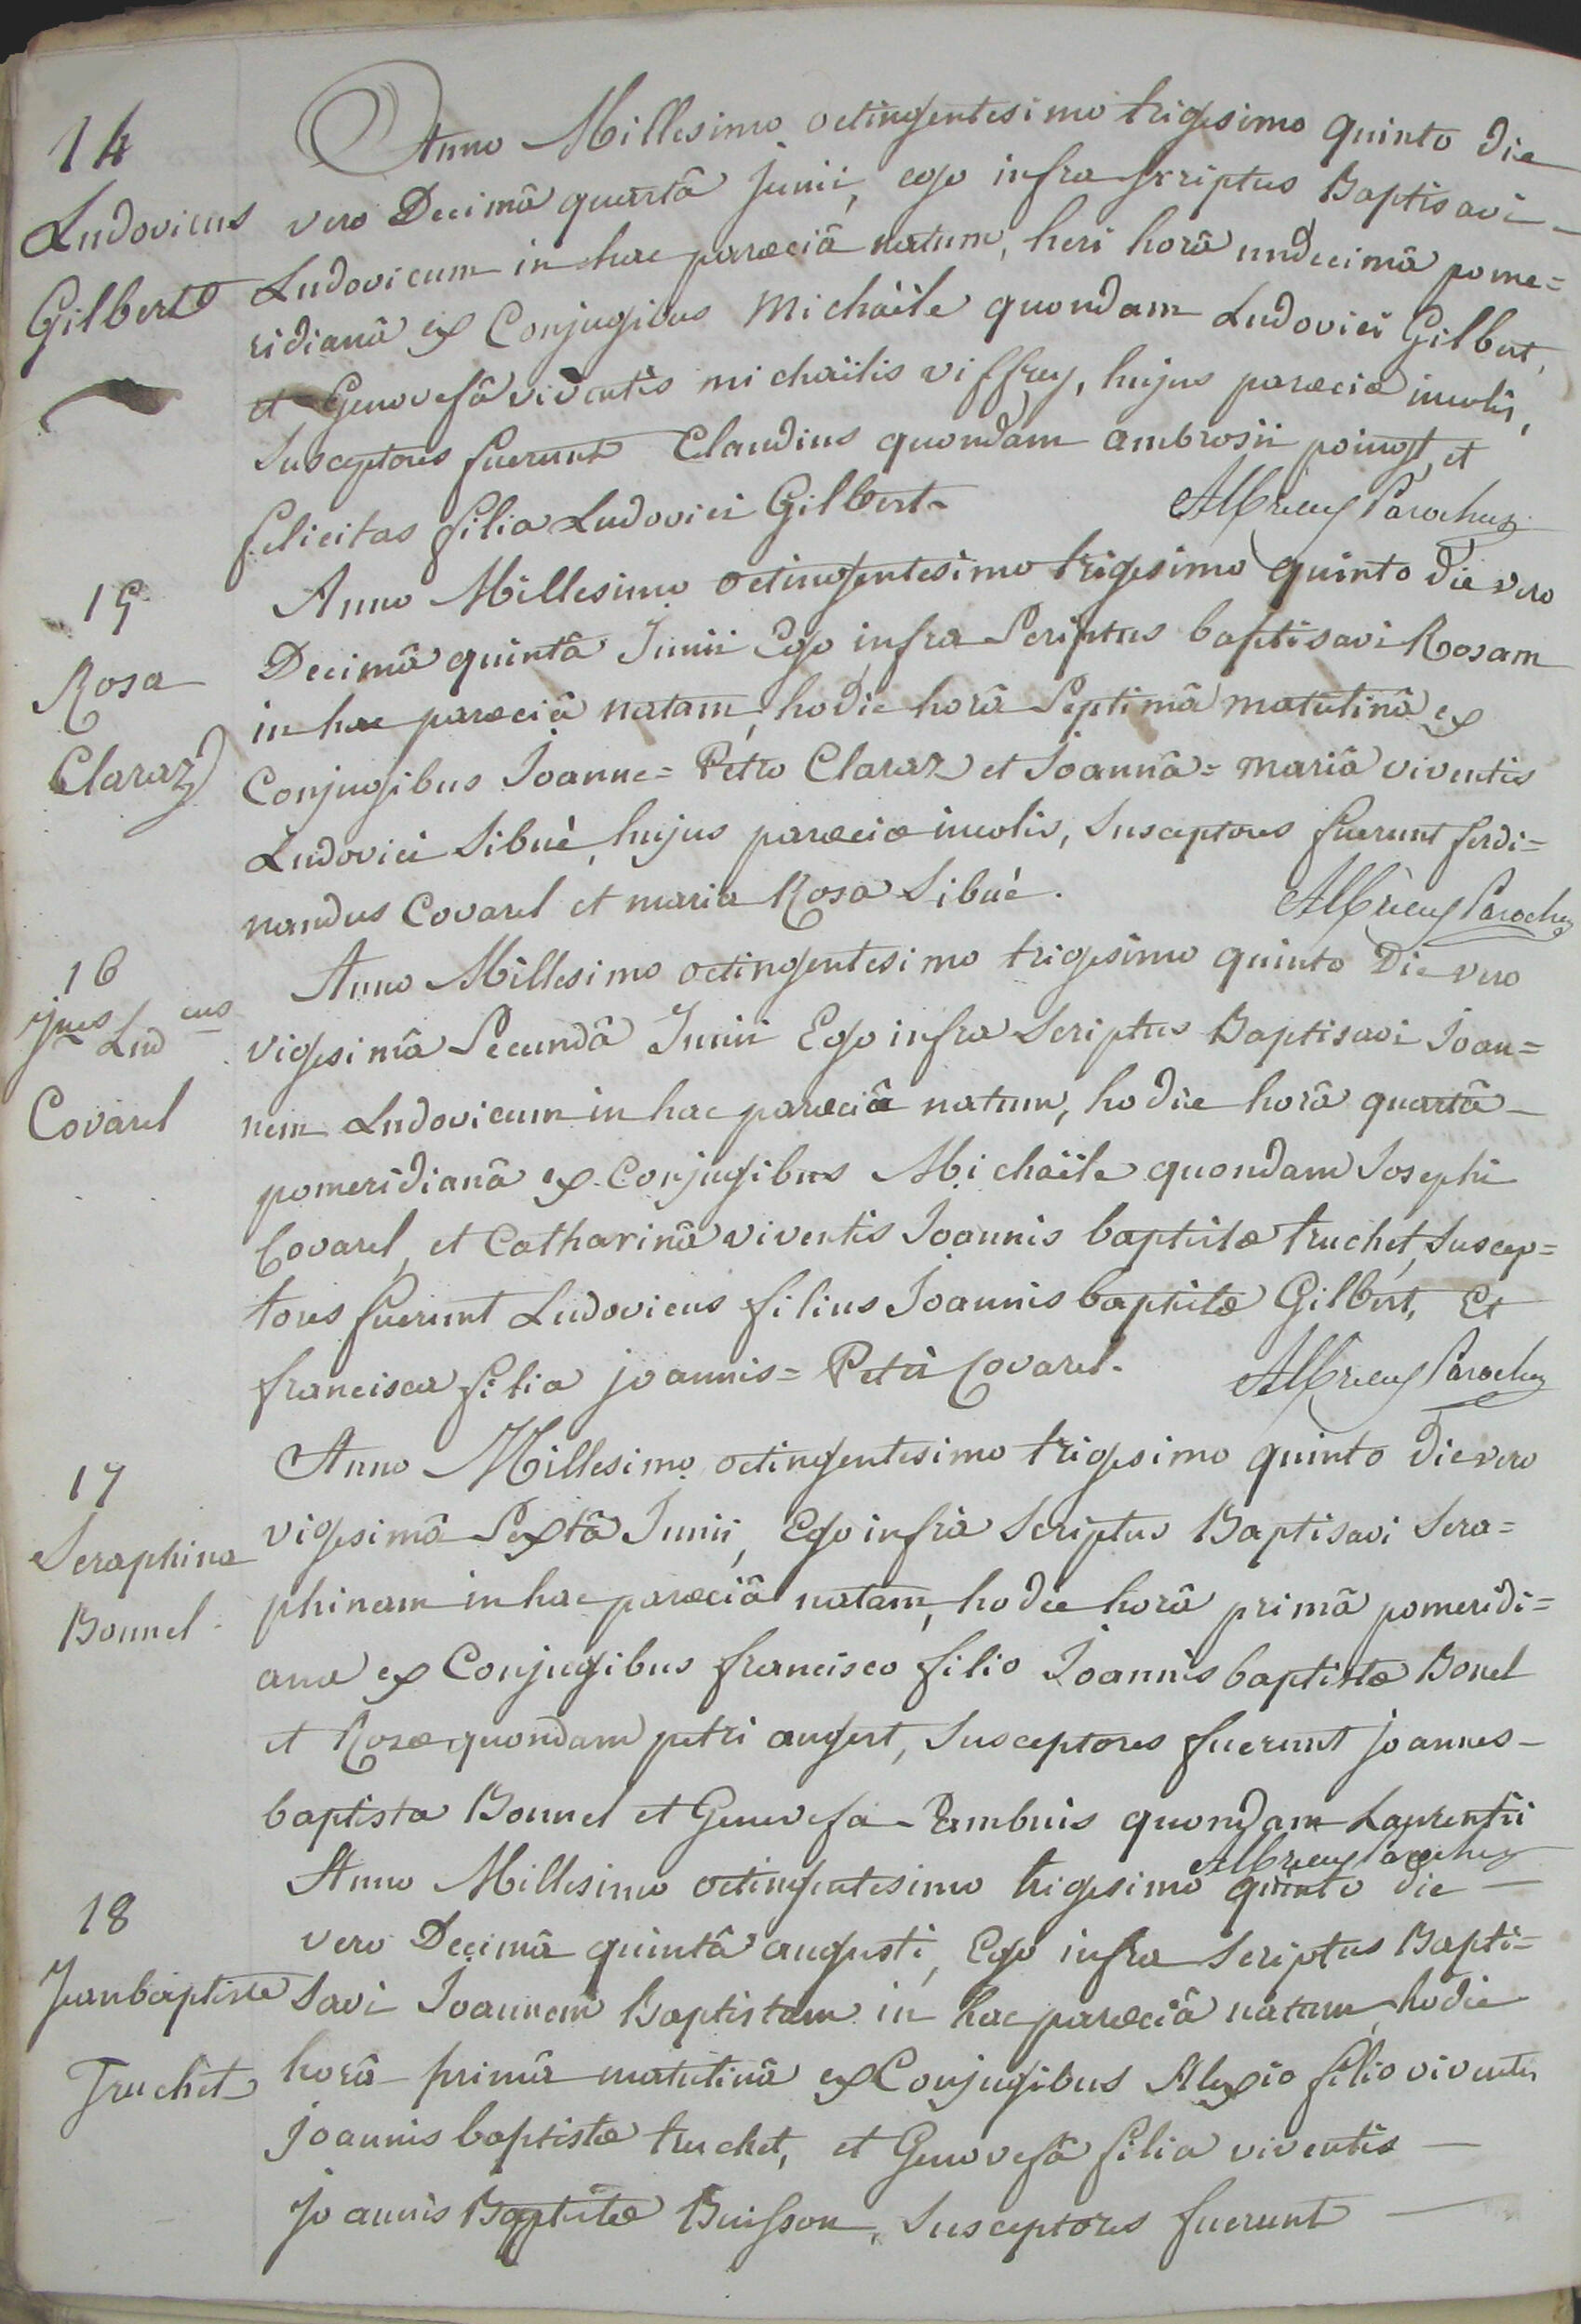 14
Ludovicus
Gilbert
Anno Millesimo octingentesimo trigesimo quinto die
vero Decimâ quartâ Junii, ego infra scriptus Baptisavi
Ludovicum in hac parœciâ natum, heri horâ undecimâ pome=
ridianâ ex Conjugibus Michäile quondam Ludovici Gilbert,
et Genovefâ viventis michäilis viffrey, hujus parœciæ incolis,
Susceptores fuerunt Claudius quondam ambrosii poingt, et
felicitas filia Ludovici Gilbert.
Parochus
15
Rosa
Claraz
Anno Millesimo octingentesimo trigesimo quinto die vero
Decimâ quintâ Junii Ego infra Scriptus baptisavi Rosam
in hac parœciâ natam, hodie horâ Septimâ matutinâ ex
Conjugibus Joanne= Petro Claraz et Joannâ= mariâ viventis
Ludovici Sibué, hujus parœciæ incolis, Susceptores fuerunt ferdi=
nandus Covarel et maria Rosa Sibué.
Parochus
16
Jnes Lud cus
Covarel
Anno Millesimo octingentesimo trigesimo quinto Die vero
vigesimâ Secundâ Junii Ego infra Scriptus Baptisavi Joan=
nem Ludovicum in hac parœciâ natum, hodie horâ quartâ
pomeridianâ ex Conjugibus Michäile quondam Josephi
Covarel, et Catharinâ viventis Joannis baptistæ truchet, Suscep=
tores fuerunt Ludovicus filius Joannis baptistæ Gilbert, Et
francisca filia joannis= Petri Covarel.
Parochus
17
Seraphina
Bonnel
Anno Millesimo octingentesimo trigesimo quinto Die vero
vigesimâ Sextâ Junii, Ego infra Scriptus Baptisavi Sera=
phinam in hac parœciâ natam, hodie horâ primâ pomeridi=
ana ex Conjugibus francisco filio Joannis baptistæ Bonel
et Rosæ quondam petri augert, Susceptores fuerunt joannes
baptista Bonnel et Genovefa Rambuis quondam Laurentii
Parochus
18
Jeanbaptiste
Truchet
Anno Millesimo octingentesimo trigesimo quinto die
vero Decimâ quintâ augusti, Ego infra Scriptus Bapti=
Savi Joannem Baptistam in hac parœciâ natum, hodie
horâ primâ matutinâ ex Conjugibus Alexio filio viventis
joannis baptistæ truchet, et Genovefâ filia viventis
joannis Baptistæ Buisson, Susceptores fuerunt